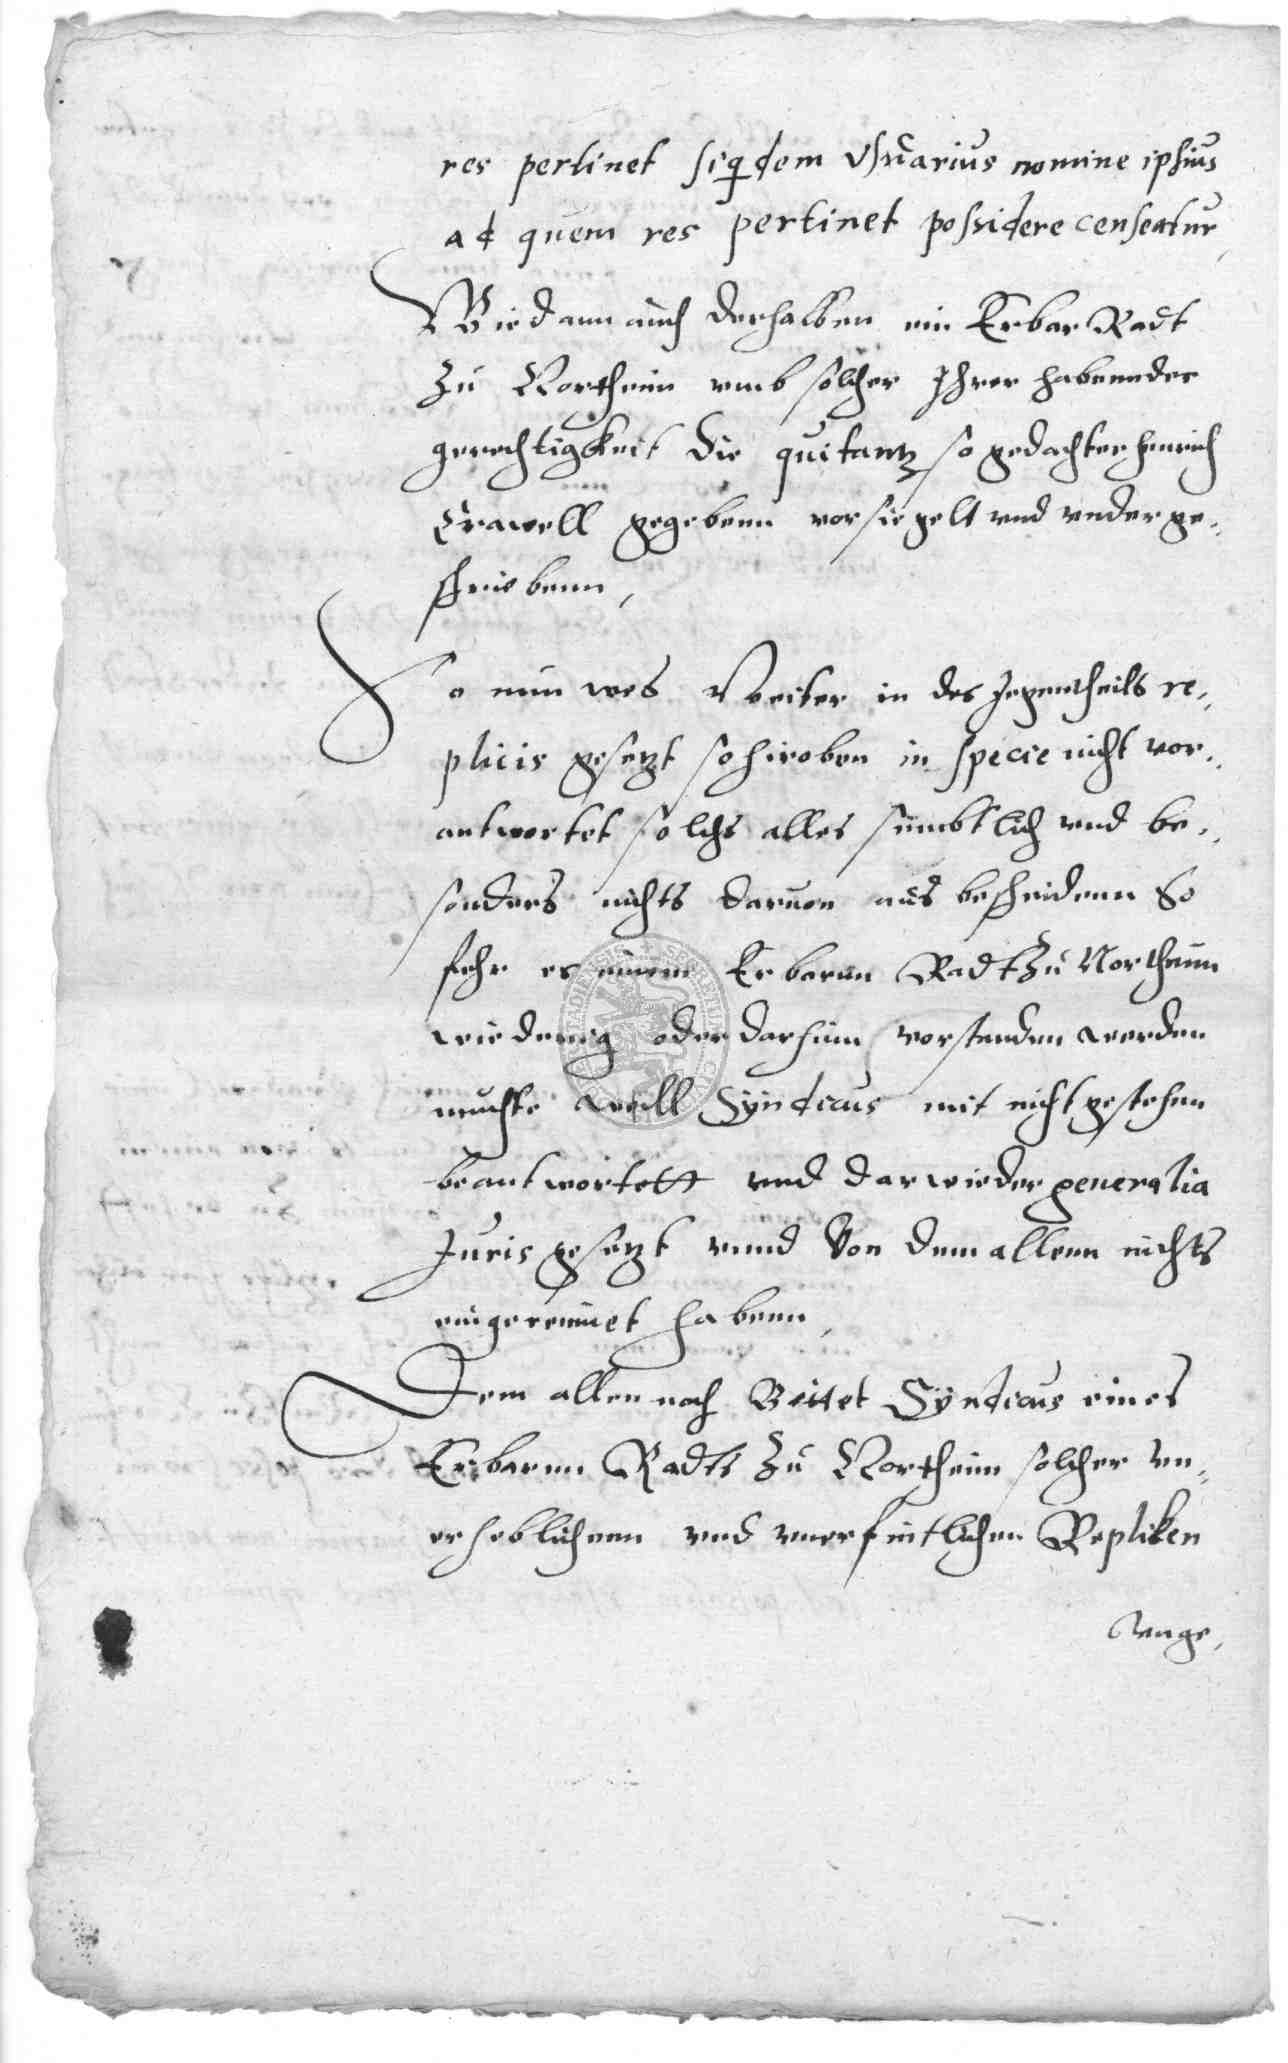 res pertinet siq̃dem Vsuarius nomine ipsius
ad quem res pertinet possidere censeatur,
Wie dann auch derhalben ein Erbar Radt
zu Northeim vmb solcher Ihrer habennder
gerechtigkeit die quitantz so gedachter Henrich
Crawell gegebenn vorsiegelt vnd vnderge-
schriebenn,
So nun wes Weiter in des Jegentheils re-
plicis gesetzt so hiroben in specie nicht vor-
antwortet solchs alles sümbtlich vnd be-
sonders nichts daruon aus bescheidenn So
fehr es einem Erbarnn Radt zu Northeim
wiedernig oder darhinn vorstanden werden
muchte will Syndicus mit nicht gestehen
beantwortett vnd darwieder generalia
Juris gesetzt vnnd Von dem allenn nichts
eingereumet habenn,
Dem allen nach Bittet Syndicus eines
Erbarnn Radts zu Northeim solcher vn-
erheblichenn vnd vnerfintlichen Repliken
vnge,